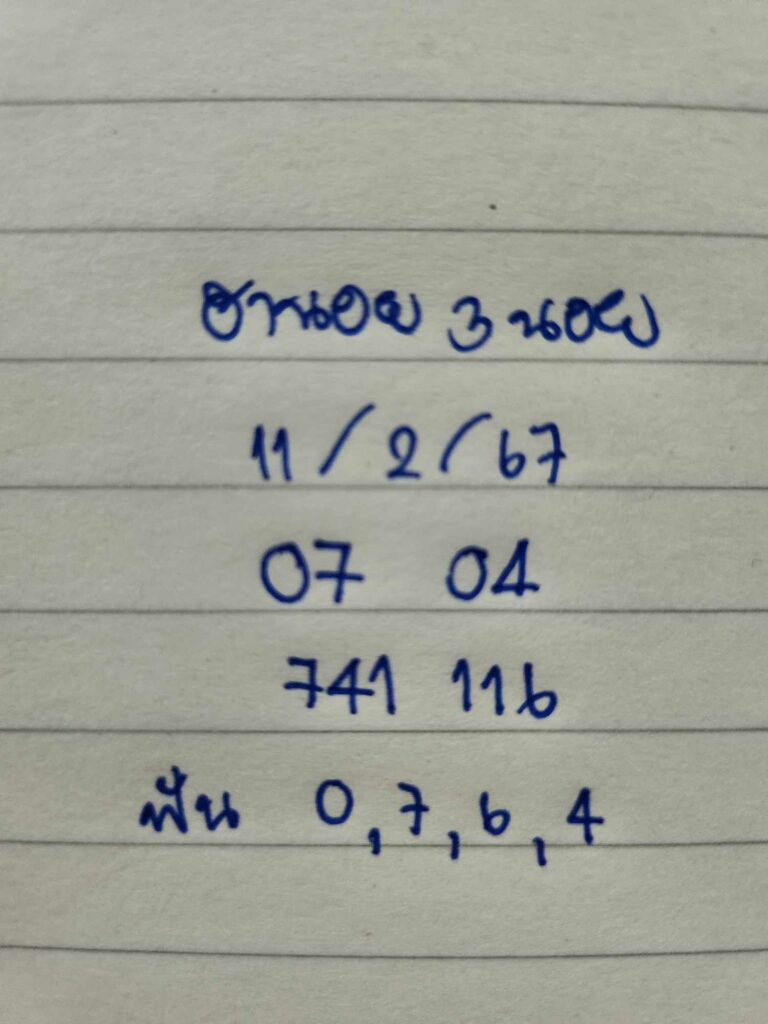 ฮานอย 3 นอย
11/2/67
07 04
741 116
ฟัน 0,7,6,4